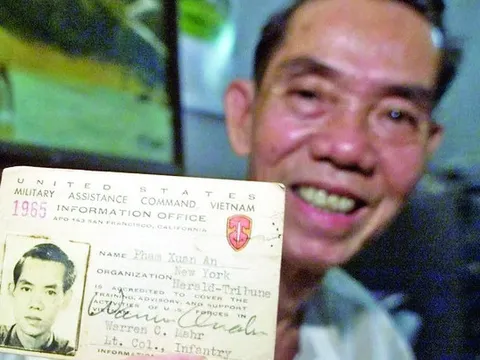 UNITED STATES
MILITARY ASSISTANCE COMMAND, VIETNAM
1965 INFORMATION OFFICE
APO 143 SAN FRANCISCO, CALIFORNIA
NAME Pham Xuan An
ORGANIZATION New York
Herald-Tribune
IS ACCREDITED TO COVER THE
TRAINING, ADVISORY, AND SUPPORT
ACTIVITIES OF U.S. FORCES IN
Warren C. Mahr
Lt. Col., Infantry
INFORMATION